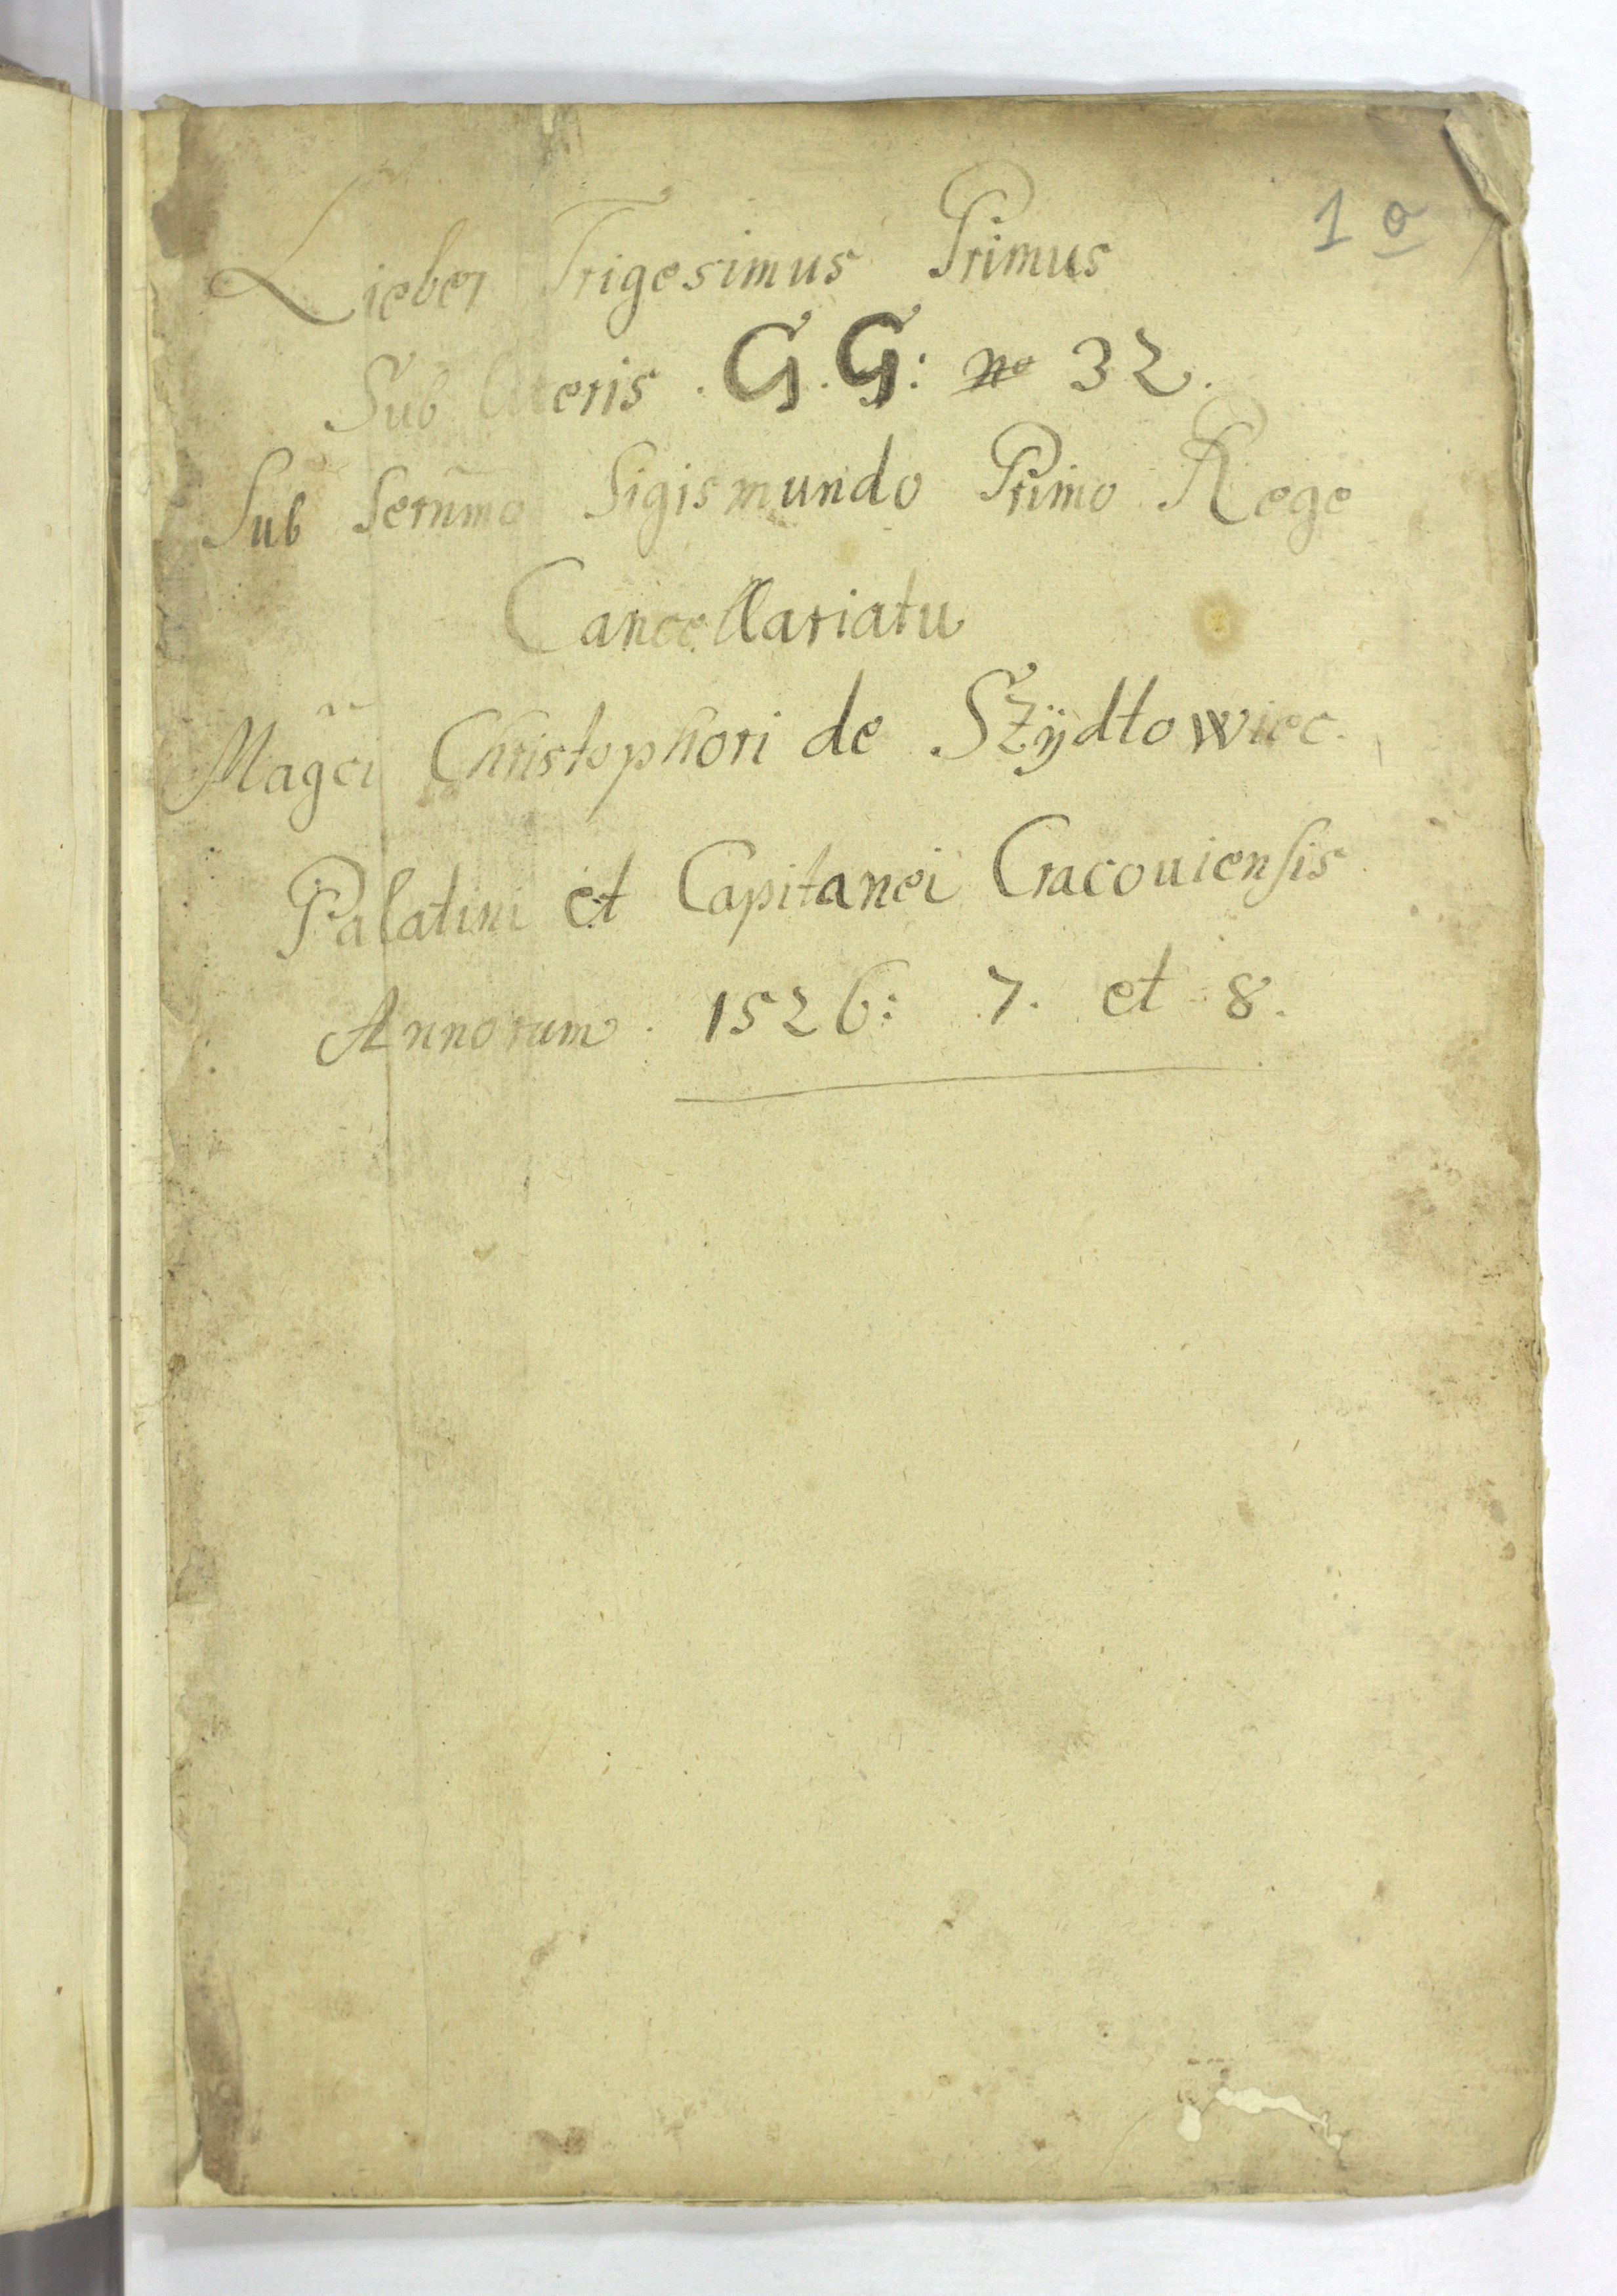 1 a
Lieber Trigesimus Primus
Sub literis . G. G: no 32.
Sub Serñmo Sigismundo Primo Rege
Cancellariatu
Magci Christophori de Szÿdłowiec.
Palatini et Capitanei Cracouiensis
Annorum . 1526: 7. et 8.